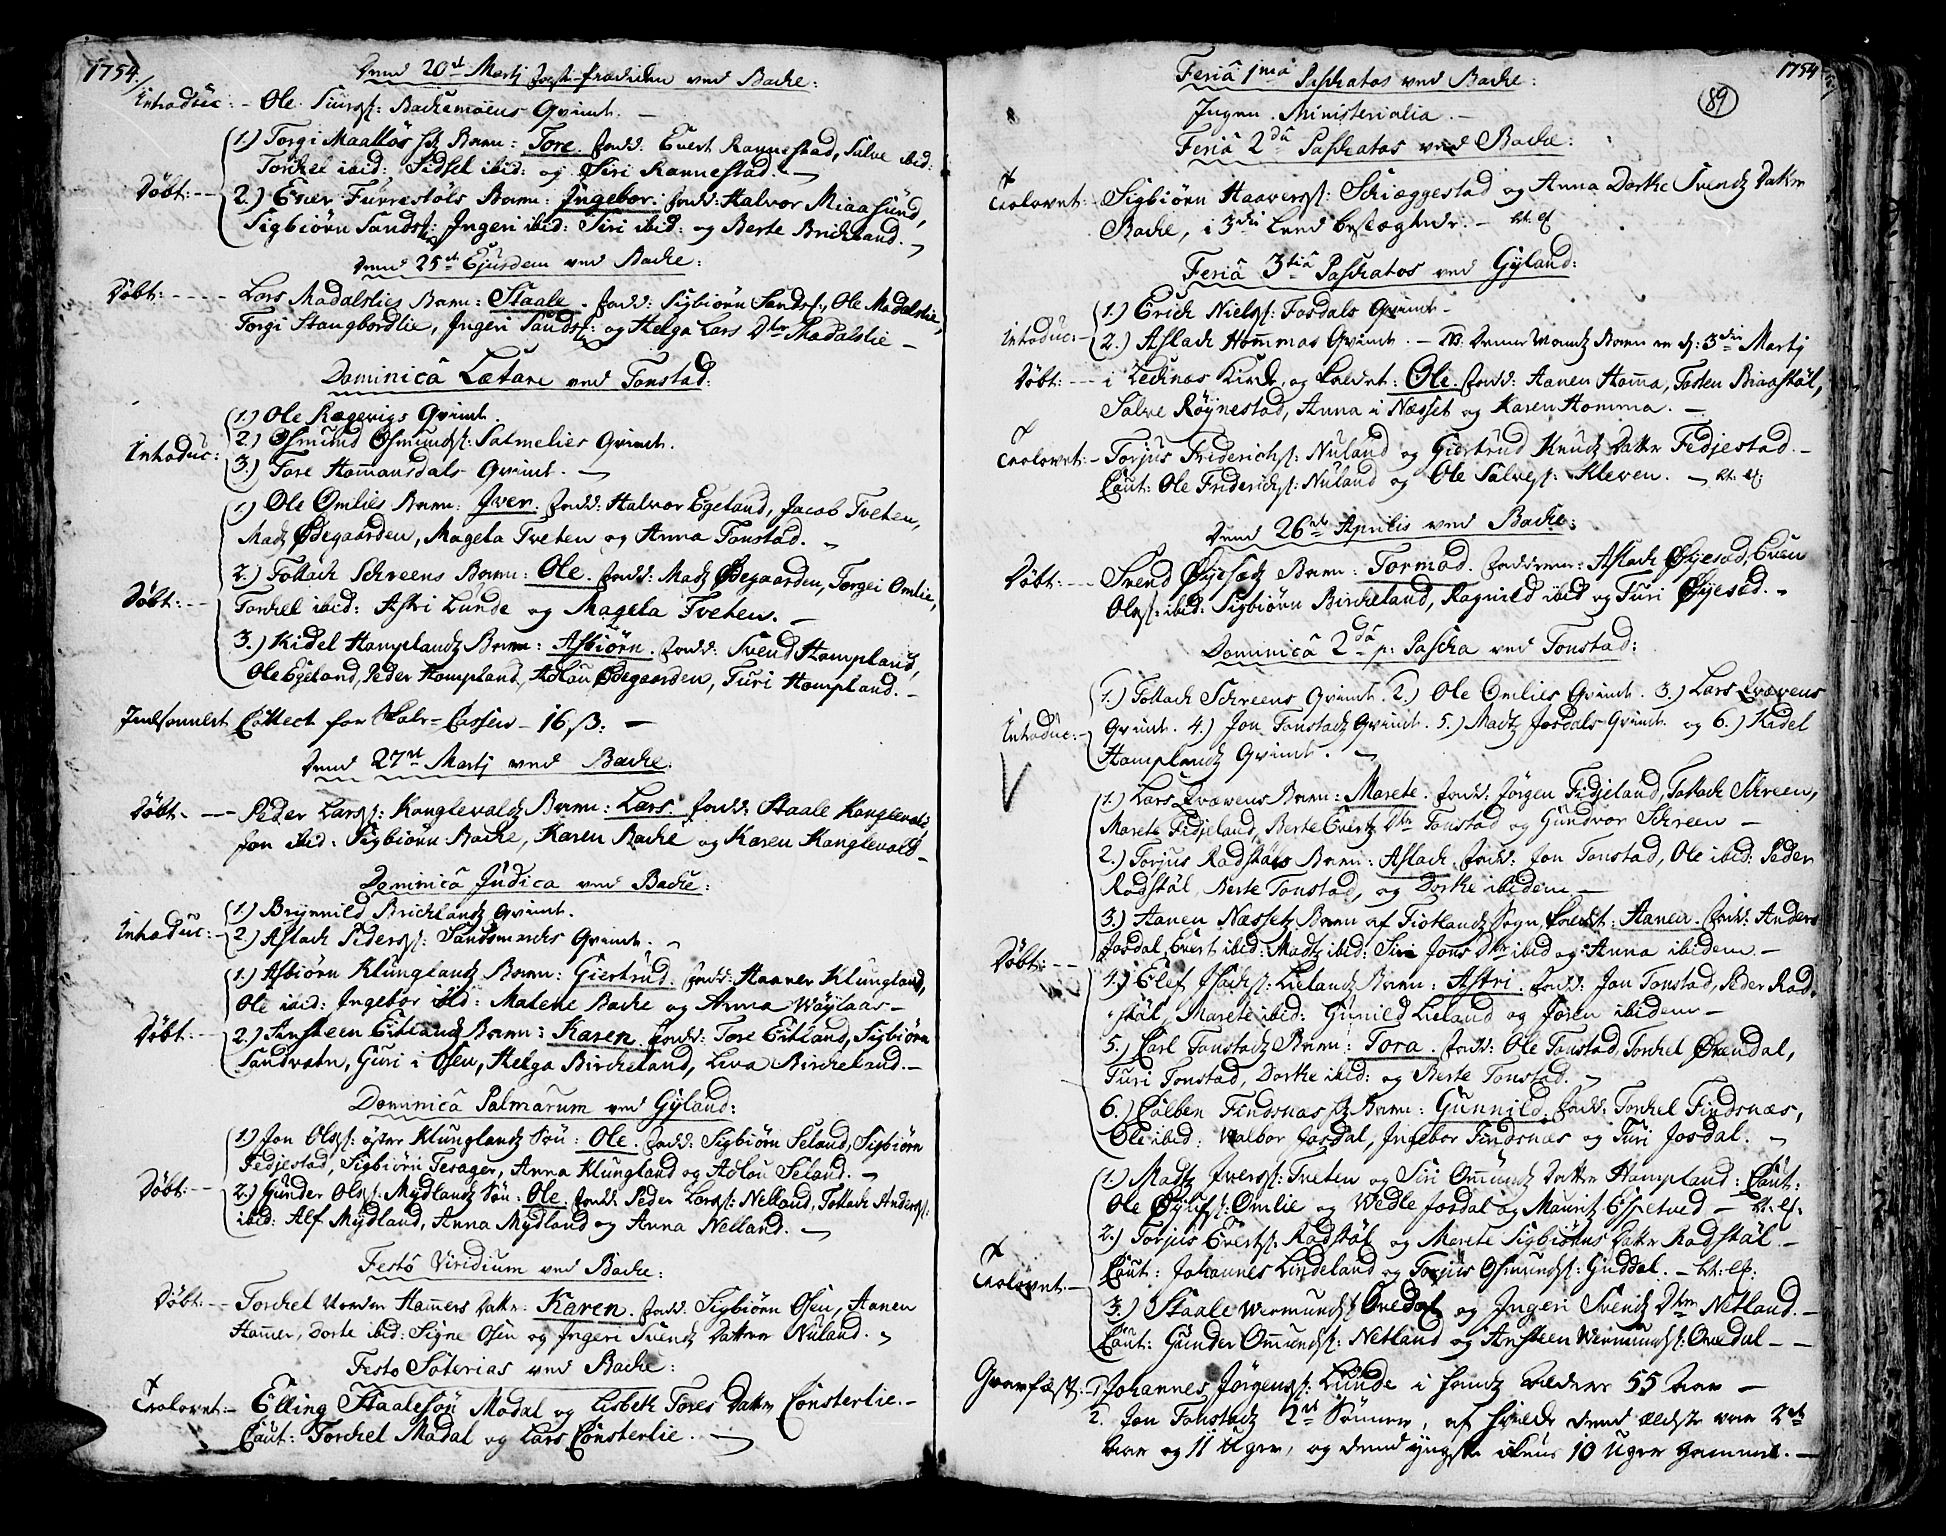 1754.
Dend 20de Martij fest-prædiken ved Backe:
Introduc: - Ole Siurs: Backemoens Qvinde. -
1.) Torgi Maalløs Barn: Tore. Fadd: Evert Rannestad, Salve ibid:
Torchel ibid: Sidsel ibid: og Siri Rannestad. -
Døbt: - 2.) Ener Furrestøls Barn: Ingebor. Fadd: Halvor Miaasund,
Sigbiørn Sands: Ingeri ibid: Siri ibid: og Berte Brichland. -
Dend 25de Ejusdem ved Backe:
Døbt: - Lars Madalslies Barn: Staale. Fadd: Sigbiørn Sands:, Ole Madalslie,
Torgi Stangbordlie, Ingeri Sands: og Helga Lars Dtr Madalslie -
Dominica Lætare ved Tonstad:
1.) Ole Rægevigs Qvinde.
Introduc: 2.) Osmund Osmunds: Salmelies Qvinde.
3.) Tore Hommansdals Qvinde. -
1.) Ole Omlies Barn: Iver. Fadd: Halvor Egeland, Jacob Tveten,
Madz Ødegaarden, Magela Tveten og Anna Tonstad. -
2.) Tollach Schreens Barn: Ole. Fadd: Madz Ødegaarden, Torgei Omlie,
Døbt: - Torchel ibid: Astri Lunde og Magela Tveten. -
3.) Kidel Homplandz Barn: Asbiørn. Fadd: Svend Hompland,
Ole Egeland, Peder Hompland, Adlou Ødegaarden, Turi Hompland. -
Collect for Schole-Cassen - 16 ß: -
Dend 27de Martij ved Backe:
Døbt. - Peder Lars: Konglevoldz Barn: Lars. Fadd: Staale Konglevold
Jon ibid: Sigbiørn Backe, Karen Backe og Karen Konglevold -
Dominica Judica ved Backe:
1.) Brynnild Brichlandz Qvinde.
Introduc: - 2.) Aslach Peders: Sandsmarchs Qvinde. -
1.) Asbiørn Klunglandz Barn: Giertrud. Fadd: Haaver Klungland,
Ole ibid: Ingebor ibid: Malene Backe og Anna Waylaas -
Døbt: - 2.) Ansteen Eitlandz Barn: Karen. Fadd: Tore Eitland, Sigbiørn
Sandvatn, Guri i Osen, Helga Bircheland, Liva Bircheland. -
Dominica Palmarum ved Gyland:
1.) Jon Ols: øster Klunglandz Søn: Ole. Fadd: Sigbiørn Seland, Sigbiørn
Fedjestad, Sigbiørn Tesager, Anna Klungland og Adlou Seland. -
Døbt: - 2.) Gunder Ols: Mydlandz Søn: Ole. Fadd: Peder Lars: Netland, Tollach Anders:
ibid: Alf Mydland, Anna Mydland og Anna Netland. -
Festo Viridium ved Backe:
Døbt: - Torchel Hammers Datter: Karen. Fadd: Sigbiørn Osen, Aanen
Hammer, Dorte ibid: Signe Osen og Ingeri Svendz Datter Nuland. -
Festo Soterias ved Backe:
Trolovet: - Elling Staalesøn Modal og Lisbeth Tores Datter Consterlie. -
Caut: Torchel Modal og Lars Consterlie. -
1754
89
Feria 1ma Paschatos ved Backe:
Ingen Ministerialia. -
Feria 2da Paschatos ved Backe:
Trolovet: - Sigbiørn Haavers: Schieggestad og Anna Dorthe Svendz Datter
Backe, i 3die Leed beslægtede. -
Feria 3tia Paschatos ved Gyland:
1.) Erich Niels: Fosdals Qvinde -
Introduc: - 2.) Aslach Hommas Qvinde. - NB. Denne Mandz Barn er d: 3die Martij
Døbt: - i Lechnas Kirche, og kaldet: Ole. Fadd: Aanen Homma, Tosten Biaastøl,
Salve Røynestad, Anna i Næsset og Karen Homma. -
Trolovet: - Torjus Friderichs: Nuland og Giertrud Knudz Datter Fedjestad. -
Caut: Ole Friderichs: Nuland og Ole Salves: Kleven. -
Dend 26de Aprilis ved Backe:
Døbt: - Svend Øyesædz Barn: Tormod. Fadderne: Aslach Øyesed, Even
Ols: ibid: Sigbiørn Bircheland, Ragnild ibid og Turi Øyesed. -
Dominica 2da p: Pascha ved Tonstad:
1.) Tollach Schreens Qvinde. 2.) Ole Omlies Qvinde. 3.) Lars Qvævens
Introduc: - Qvinde. 4.) Jon Tonstadz Qvinde. 5.) Madz Josdals Qvinde. og 6.) Kidel
Homplandz Qvinde. -
1.) Lars Qvævens Barn: Marete. Fadd: Jørgen Fidjeland, Tollach Schreen,
Marete Fidjeland, Berte Evertz Dtr Tonstad og Gundvor Schreen -
2.) Torjus Rødstøls Barn: Aslach. Fadd: Jon Tonstad, Ole ibid: Peder
Rødstøl, Berte Tonstad, og Dorthe ibidem -
3.) Aanen Næssetz Barn af Fiotlandz Sogn, kaldet: Aanen. Fadd: Anders
Døbt: - Josdal, Evert ibid: Madtz ibid: Siri Jons Dtr ibid og Anna ibidem -
4.) Elef Isachs: Lielandz Barn: Astri. Fadd: Jon Tonstad, Peder Rød-
støl, Marete ibid: Gunild Lieland og Joren ibidem -
5.) Carl Tonstadz Barn: Tora. Fadd: Ole Tonstad, Torchel Øvendal,
Turi Tonstad, Dorthe ibid: og Berte Tonstad. -
6.) Colben Findsnas Barn: Gunnild. Fadd: Torchel Findsnæs,
Ole ibid: Walbor Josdal, Ingebor Findsnæs og Turi Josdal. -
1.) Madtz Ivers: Tveten og Siri Omundz Datter Hompland: Caut:
Ole Eylifs: Omlie og Wedle Josdal og Mauritz Espetved -
2.) Torjus Everts: Rødstøl og Merete Sigbiørns Datter Rødstøl. -
Trolovet - Caut: Johannes Lindeland og Torjus Osmunds: Guddal. -
3.) Staale Wermunds: Qvedal og Ingeri Svendz Dtr Netland. -
Caut: Gunder Ommunds: Netland og Ansteen Wermunds: Qvedal - -
Gravfæst: - 1. Johannes Jørgens: Lunde i sandz alder 55 Aar -
2. Jon Tonstadz 2de Sønner, af hvilke dend ældste var 2de
Aar og 11 Uger, og dend yngste ikun 10 Uger gammel. -